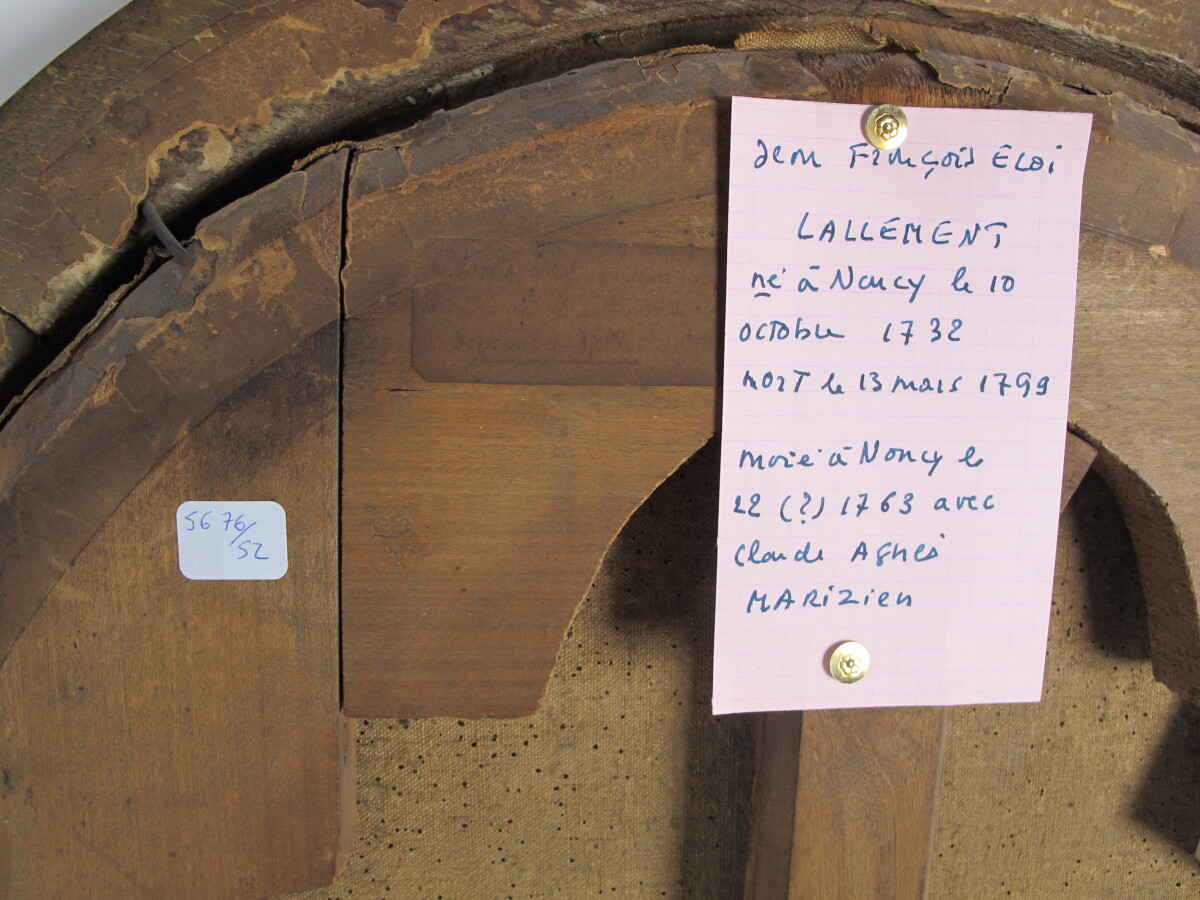 Jean François Eloi
LALLEMENT
né à Nancy le 10
octobre 1732
mort le 13 mars 1799
marié à Nancy le
22 (?) 1763 avec
Claude Agnès
MARIZIEN
56 76/52